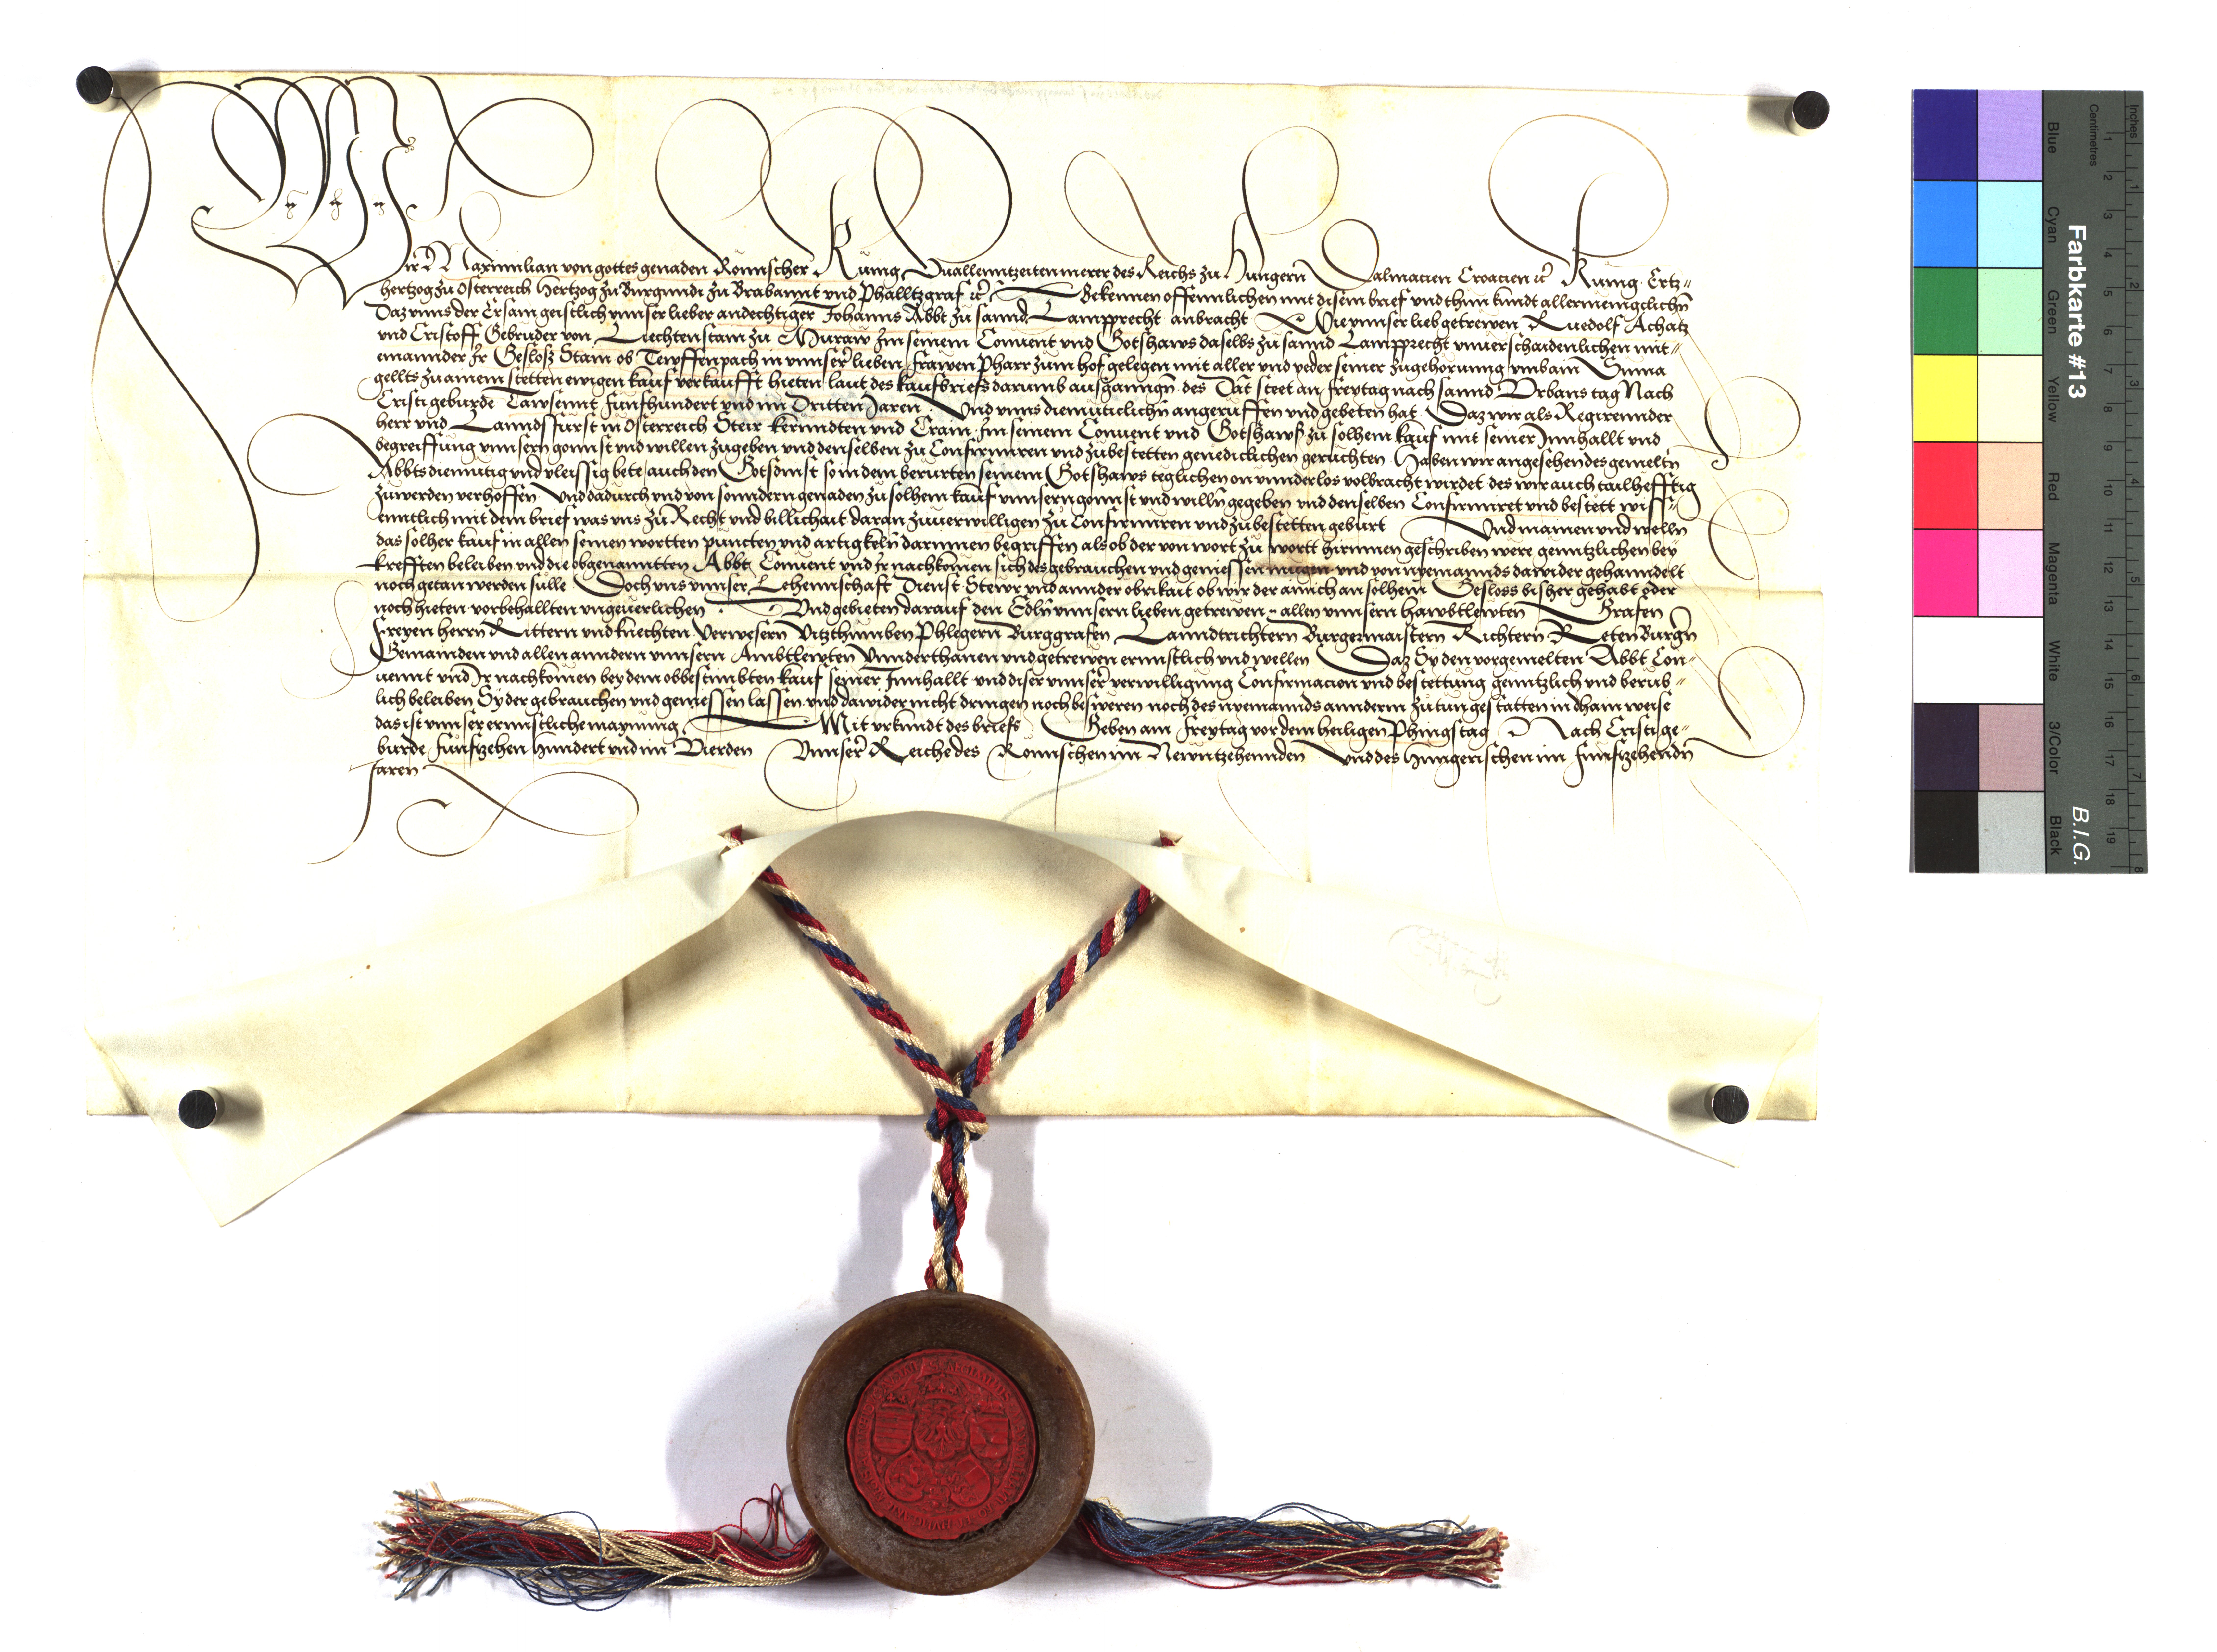 Wir Maximilian von gottes genaden Romischer Kunig zuallenntzeiten merer des Reichs zu Hungern Dalmacien Croacien etc Kunig Ertz-
hertzog zu Osterreich Hertzog zu Burgundi zu Brabannt vnd Phalltzgraf etc Bekennen offennlichen mit disem brief vnd thun kundt allermenigclichn
Daz vnns der Ersam geistlich vnnser lieber andechtiger Johanns Abbt zu sannd Lampprecht anbracht Wie vnnser lieb getrewen Ruedolf Achatz
vnd Cristoff Gebruder von Liechtenstain zu Muraw Im seinem Conuent vnd Gotshaws daselbs zu sannd Lampprecht vnuerschaidenlichen mit-
emannder Ir Gesloss Stain ob Tewffenpach in vnnser lieben frawen Pharr zum hof gelegen mit aller vnd yeder seiner zugehorung vmb ain Suma
gellts zu ainem stetten ewigen kauf verkaufft hieten laut des kaufbriefs darumb ausganngn des Dat steet an freytag nach sannd Vrbans tag Nach
Cristi geburde Tawsennt funfhundert vnd im Dritten Jaren Vnd vnns diemuticlichn angeruffen vnd gebeten hat Daz wir als Regirennder
herr vnd Lanndsfurst in Osterreich Steir kernndten vnd Crain Im seinem Conuent vnd Gotshaws zu solhem kauf mit seiner Innhallt vnd
begreiffung vnnsern gonnst vnd willen zugeben vnd denselben zu Confirmiren vnd zubestetten genediclichen geruchten Haben wir angesehen des gemeltn
Abbts diemutig vnd vleissig bete auch den Gotsdinst so in dem berurten seinem Gotshaws teglichen on vnnderlos volbracht wirdet des wir auch tailhefftig
zuwerden verhoffen Vnd dadurch vnd von sonndern genaden zu solhem kauf vnnsern gonnst vnd willn gegeben vnd denselben Confirmiret vnd bestett wiss-
enntlich mit dem brief was vns zu Recht vnd billichait daran zuuerwilligen zu Confirmiren vnd zubestetten geburt Vnd mainen vnd welln
das solher kauf in allen seinen wortten puncten vnd artigkeln darinnen begriffen als ob der von wort zu wortt hirinnen geschriben were genntzlichen bey
krefften beleiben vnd die obgenannten Abbt Conuent vnd Ir nachkomen sich des gebrauchen vnd geniessen mugen vnd von nyemannds dawider gehanndelt
noch getan werden sulle Doch vns vnnser Lehennschaft Dienst Stewr vnd annder obrikait ob wir der ainich an solhem Gesloss bisher gehabt oder
noch hieten vorbehallten vngeuerlichen Vnd gebieten darauf den Edln vnnsern lieben getrewen allen vnnsern hawbtlewten Grafen
freyen herrn Rittern vnd knechten Verwesern Vitzthumben Phlegern Burggrafen Lanndtrichtern Burgermaistern Richtern Reten Burgern
Gemainden vnd allen anndern vnnsern Ambtlewten Vnnderthanen vnd getrewen ernnstlich vnd wellen Daz Sy den vorgemelten Abbt Con-
uennt vnd Ir nachkomen bey dem obbestimbten kauf seiner Innhallt vnd diser vnnser verwilligung Confirmacion vnd bestettung genntzlich vnd berub-
lich beleiben Sy der gebrauchen vnd geniessen lassen vnd dawider nicht dringen noch besweren noch des nyemannds anndern zutun gestatten in dhain weise
das ist vnnser ernnstliche maynung Mit vrkundt des briefs Geben am freytag vor dem heiligen Phingstag Nach Cristi ge-
burde funfzehen hundert vnd im Vierden Vnnser Reiche des Romischen im Newntzehennden vnd des Hungerischen im funfzehendn
Jaren
Farbkarte #13
B.I.G.
Inches
Centimetres
Blue
Cyan
Green
Yellow
Red
Magenta
White
3/Color
Black
1 2 3 4 5 6 7 8 9 10 11 12 13 14 15 16 17 18 19
1 2 3 4 5 6 7 8